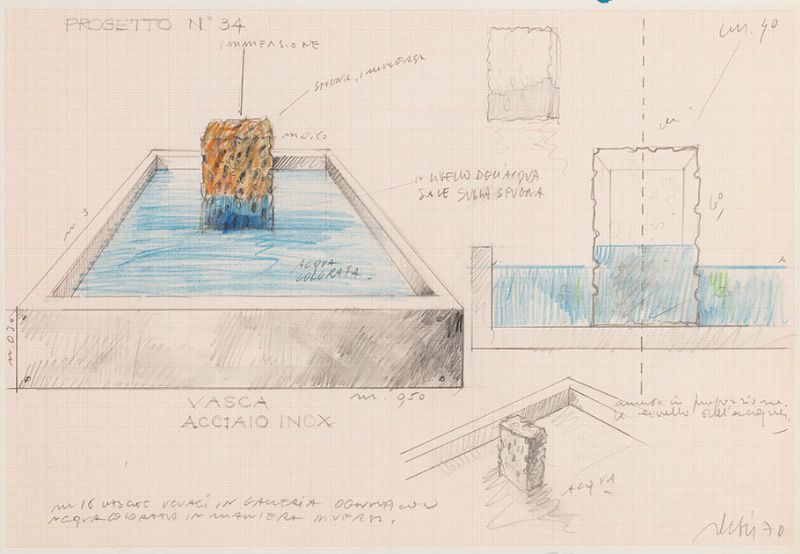 PROGETTO N° 34
IMMERSIONE
cm. 40
SPUGNA, IMMERSA
m 0,50
IL LIVELLO DELL'ACQUA
SALE SULLA SPUGNA
m 3
ACQUA
COLORATA
A
VASCA
ACCIAIO INOX
in proporzione
il livello dell'acqua
ACQUA
N 16 VASCHE IN GALLERIA OGNUNA CON
ACQUA COLORATA IN MANIERA DIVERSA.
70